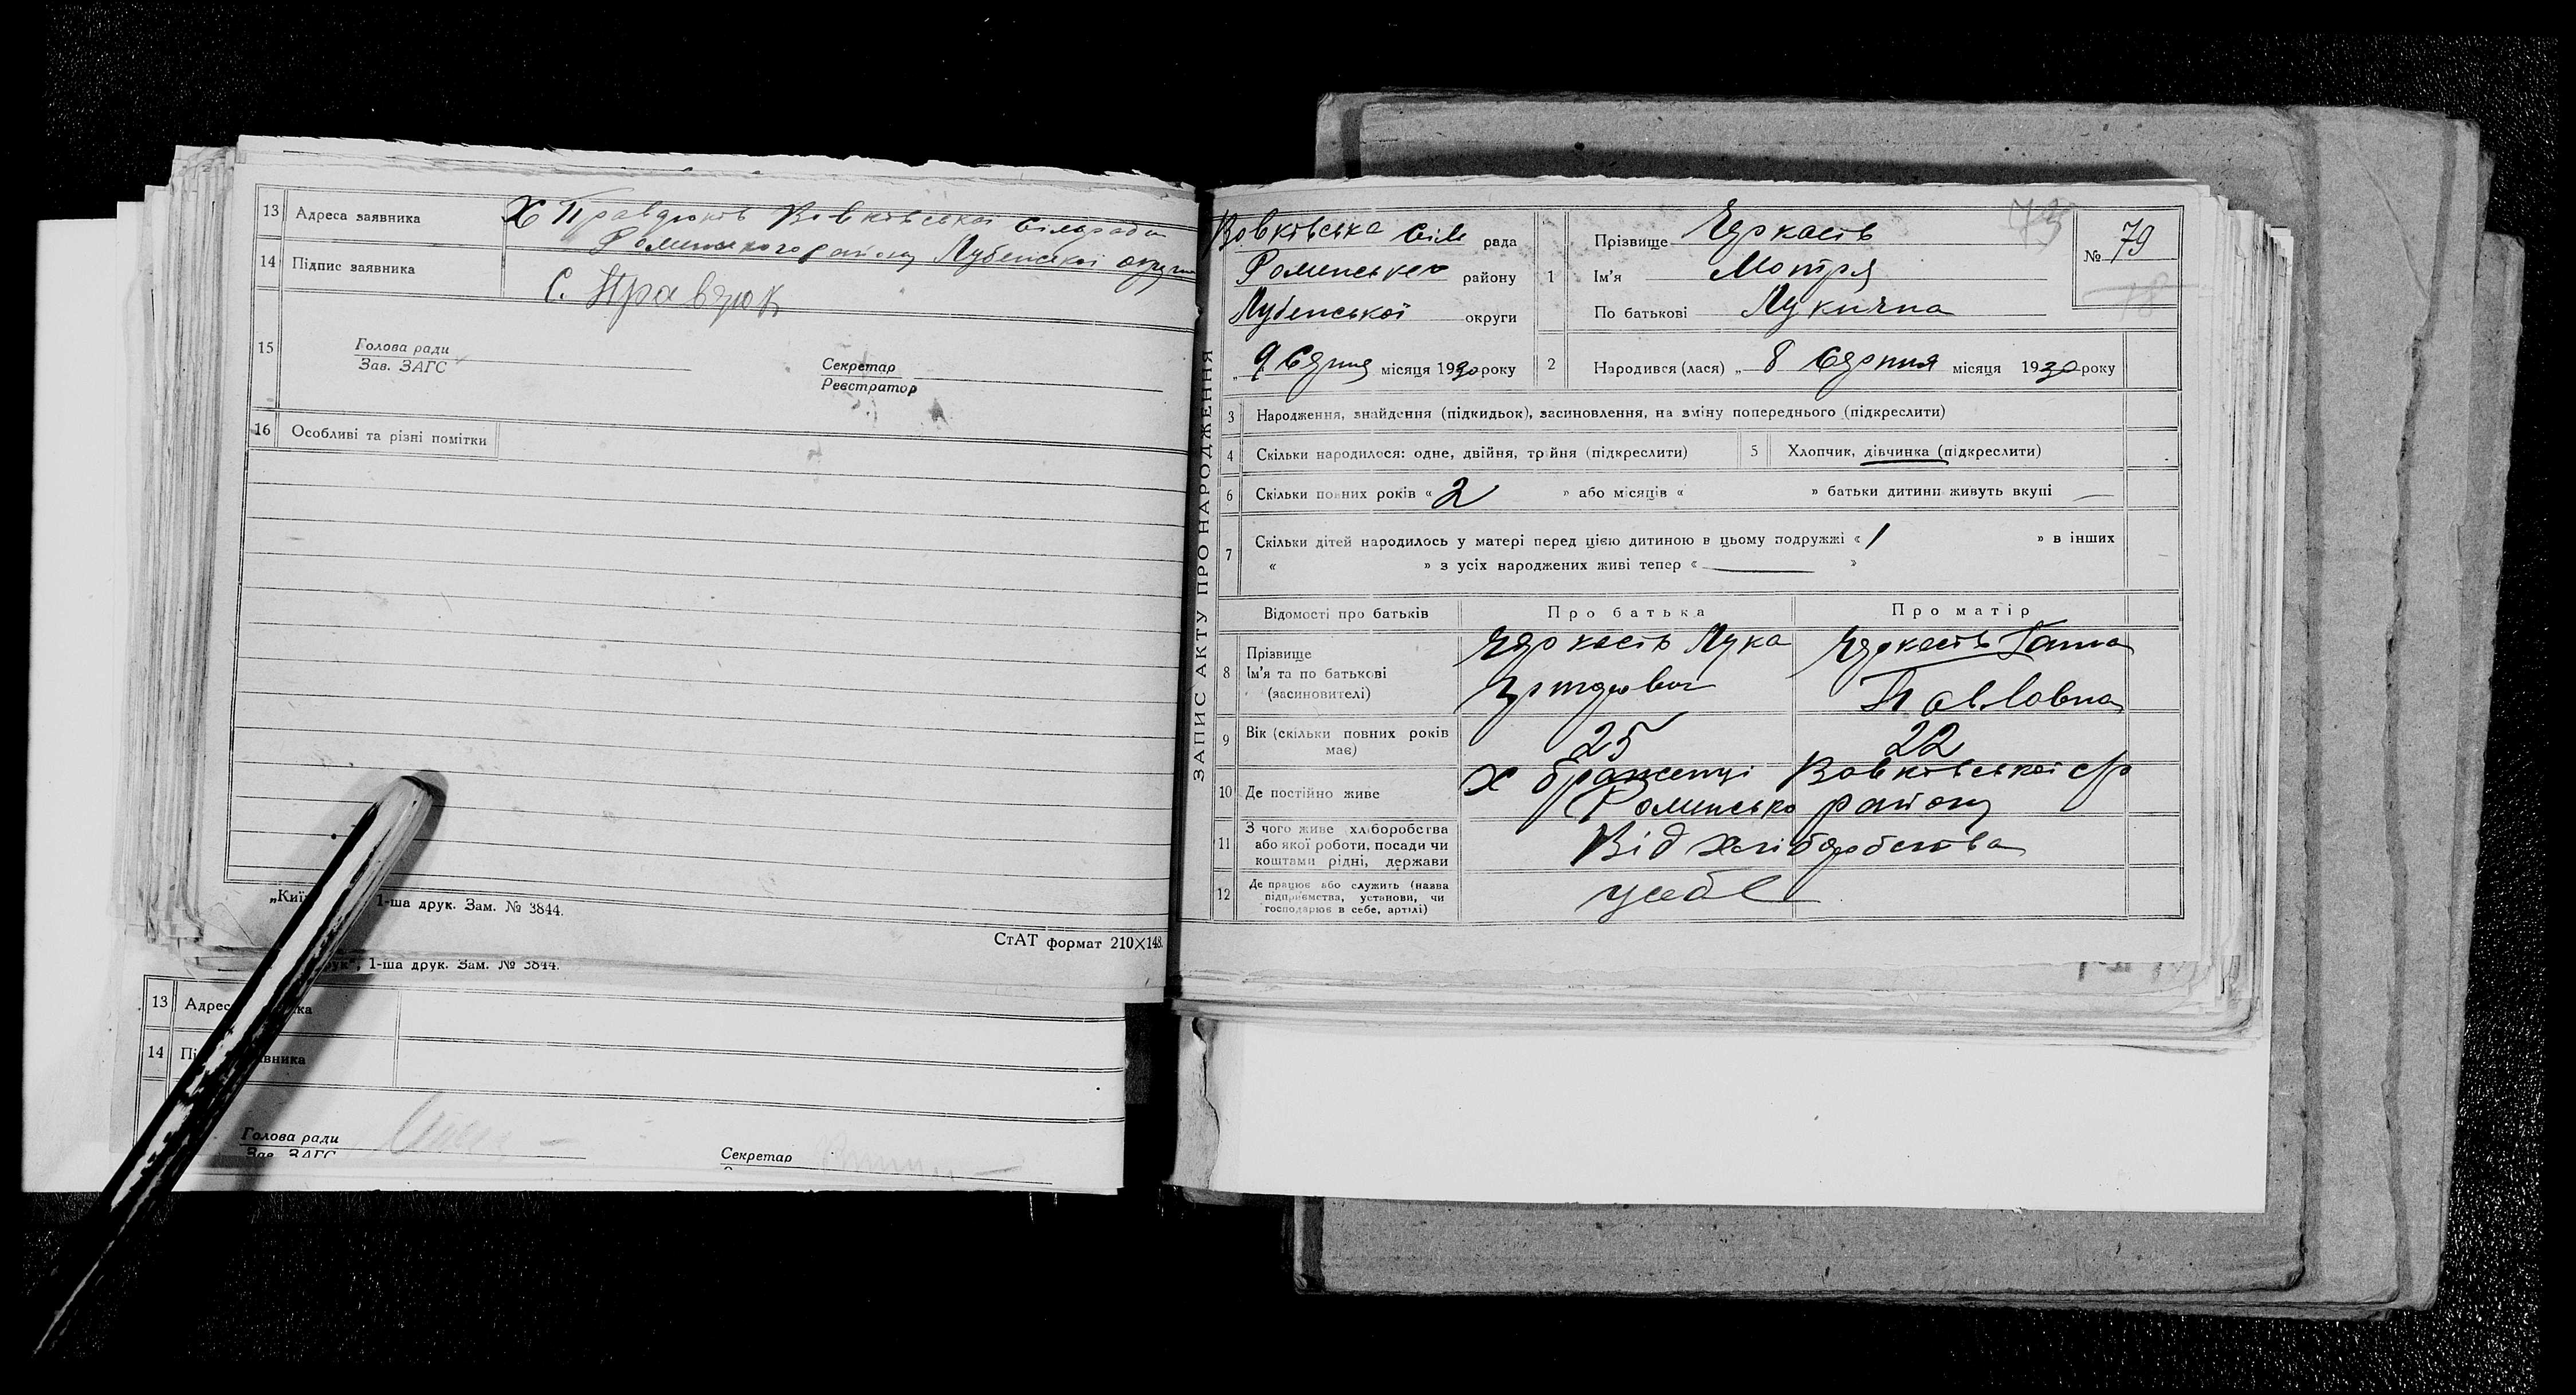 13 Адреса заявника Х Правдюків Вовківської сільради
Роменського району Лубенської округи
14 Підпис заявника С. Правдюк
15 Голова ради
Зав. ЗАГС
Секретар
Реєстратор
16 Особливі та різні помітки
1-ша друк. Зам. № 3844.
СтАТ формат 210×148.
1-ша друк. Зам. № 3844.
13
14
Голова ради
Зав. ЗАГС
Секретар
ЗАПИС АКТУ ПРО НАРОДЖЕННЯ
Вовківська сіль рада
Роменсько району
Лубенської округи
„ 9 Серпня місяця 1930 року
1 Прізвище
Ім'я Мотря
По батькові Лукична
№ 79
2 Народився (лася) „ 8 Серпня місяця 1930 року
3 Народження, знайдення (підкидьок), засиновлення, на зміну попереднього (підкреслити)
4 Скільки народилося: одне, двійня, трійня (підкреслити) 5 Хлопчик, дівчинка (підкреслити)
6 Скільки повних років « 2 » або місяців « » батьки дитини живуть вкупі —
7 Скільки дітей народилось у матері перед цією дитиною в цьому подружжі « 1 » в інших
« » з усіх народжених живі тепер « — »
Відомості про батьків Про батька Про матір
8 Прізвище
Ім'я та по батькові
(засиновителі)
Лука
Ганна
Павловна
9 Вік (скільки повних років має) 25 22
10 Де постійно живе х Вовківської с/р
Роменсько району
11 З чого живе хліборобства
або якої роботи, посади чи
коштами рідні, держави
Від хліборобства
12 Де працює або служить (назва
підприємства, установи, чи
господарює в себе, артілі)
у себе